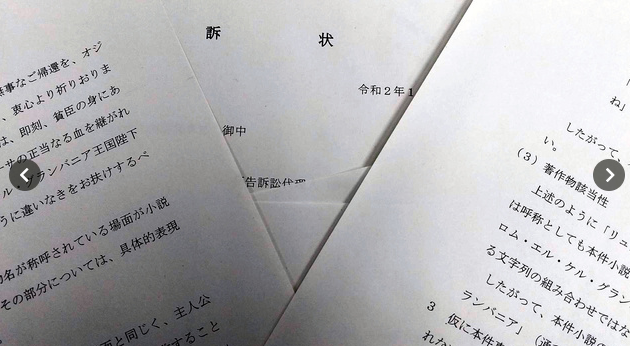 無事なご帰還を、オジ
、衷心より祈りおりま
は、即刻、貴臣の身にあ
ーサの正当なる血を継がれ
ル・グランバニア王国陛下
うに違いなきをお扶けするべ
名が称呼されている場面が小説
その部分については、具体的表現
面と同じく、主人公
すること
訴 状
令和2年1
御中
告訴訟代
ね」
したがって、
い。
(3) 著作物該当性
上述のように「リュ
は呼称としても本件小説
ロム・エル・ケル・グラン
る文字列の組み合わせではな
したがって、本件小説の
ランバニア」(通
3 仮に本件事
れな